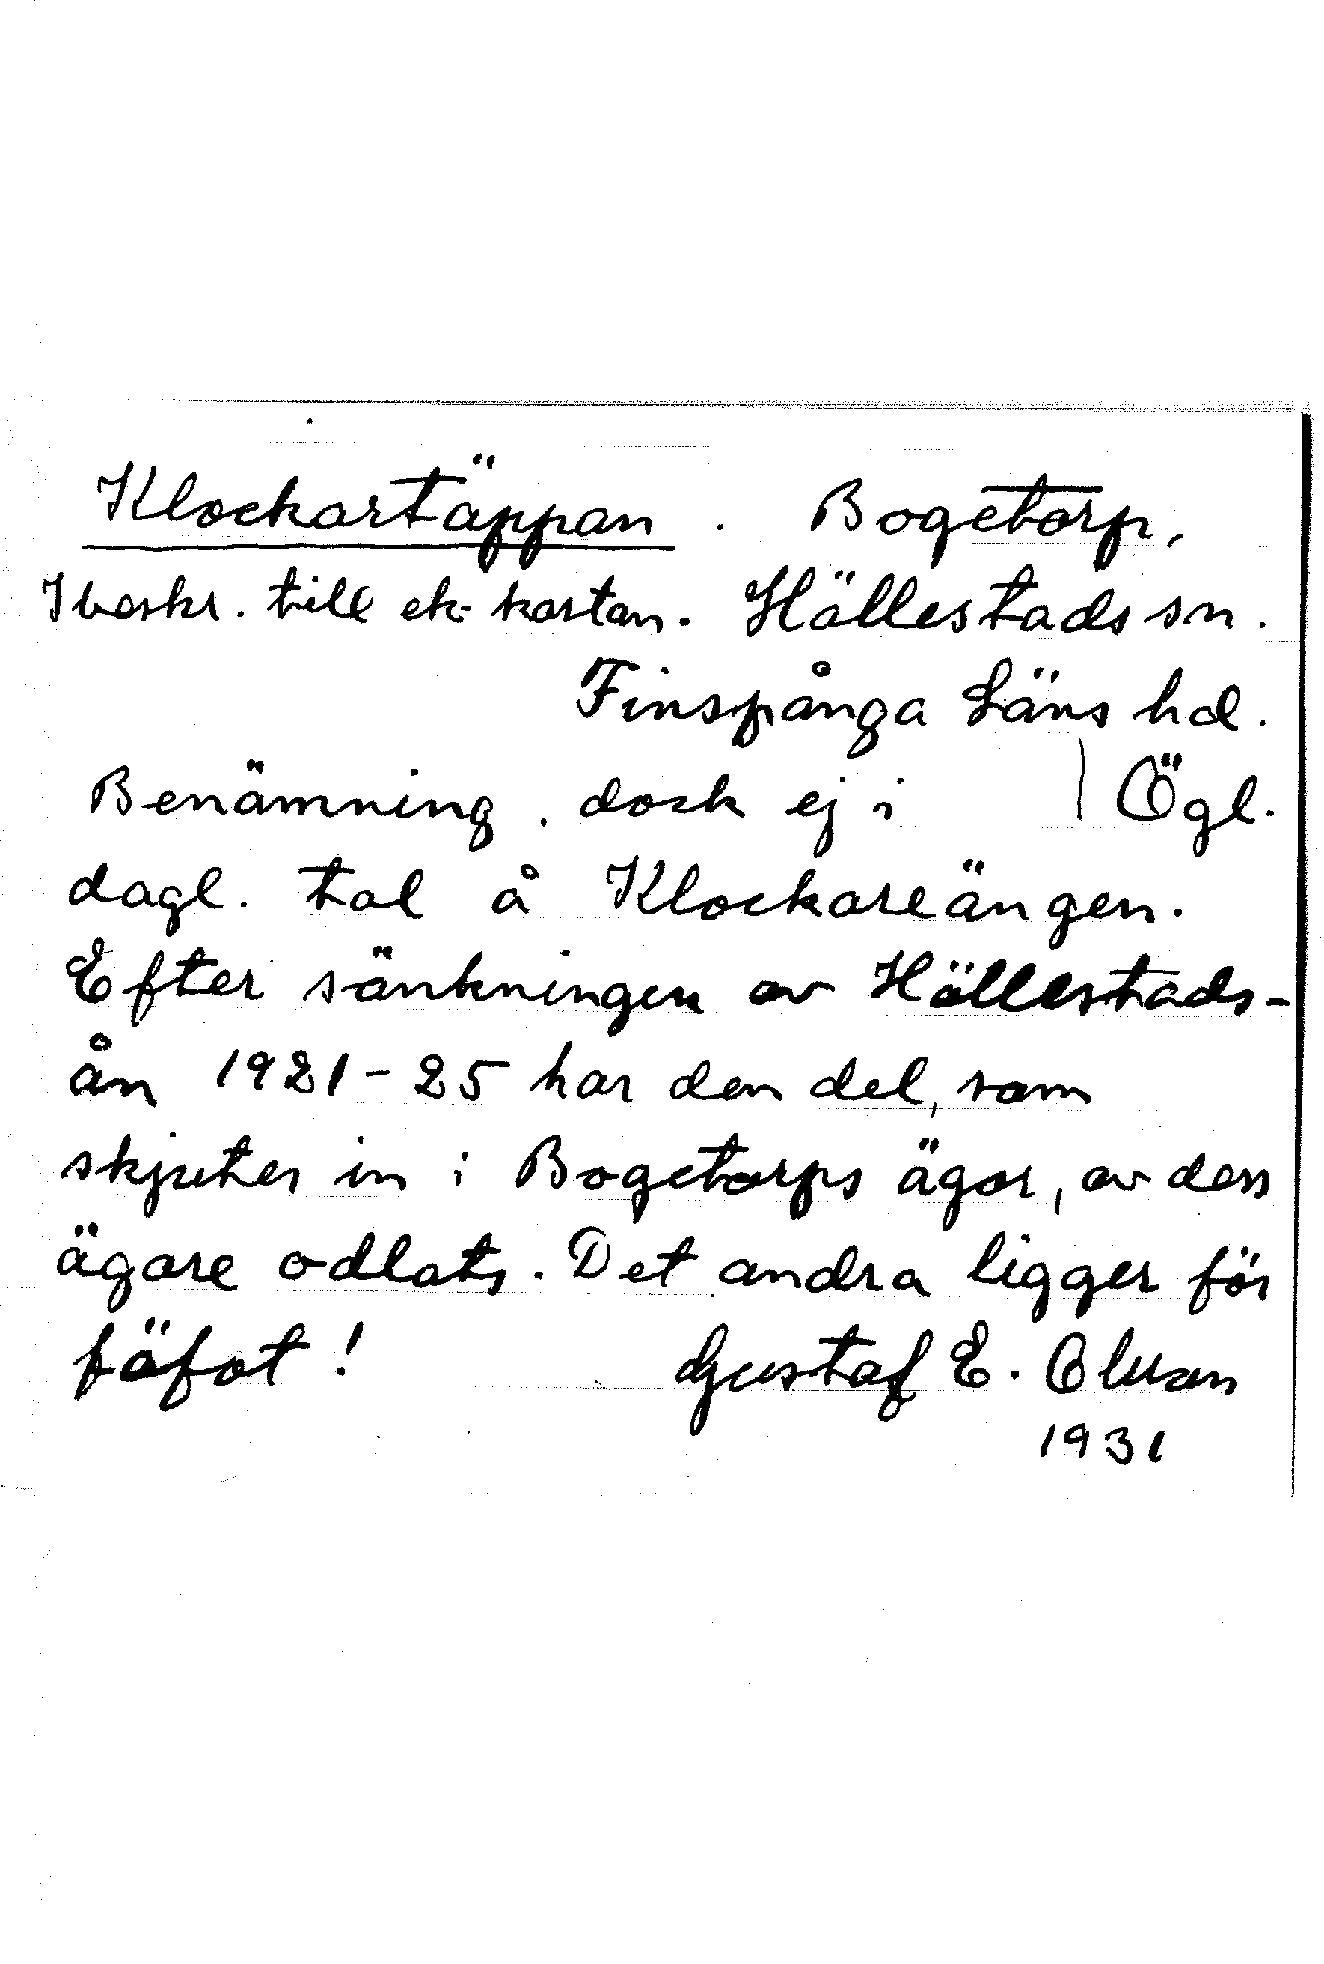 Klockartäppan. Bogetorp,
I beskr. till ek-kartan. Hällestads sn.
Finspånga Läns hd.
Benämning, dock ej i Ögl.
dagl. tal å Klockareängen.
Efter sänkningen av Hällestads-
ån 1921-25 har den del, som
skjuter in i Bogetorps ägor, av dess
ägare odlats. Det andra ligger för
fäfot! Gustaf E. Olsson
1931